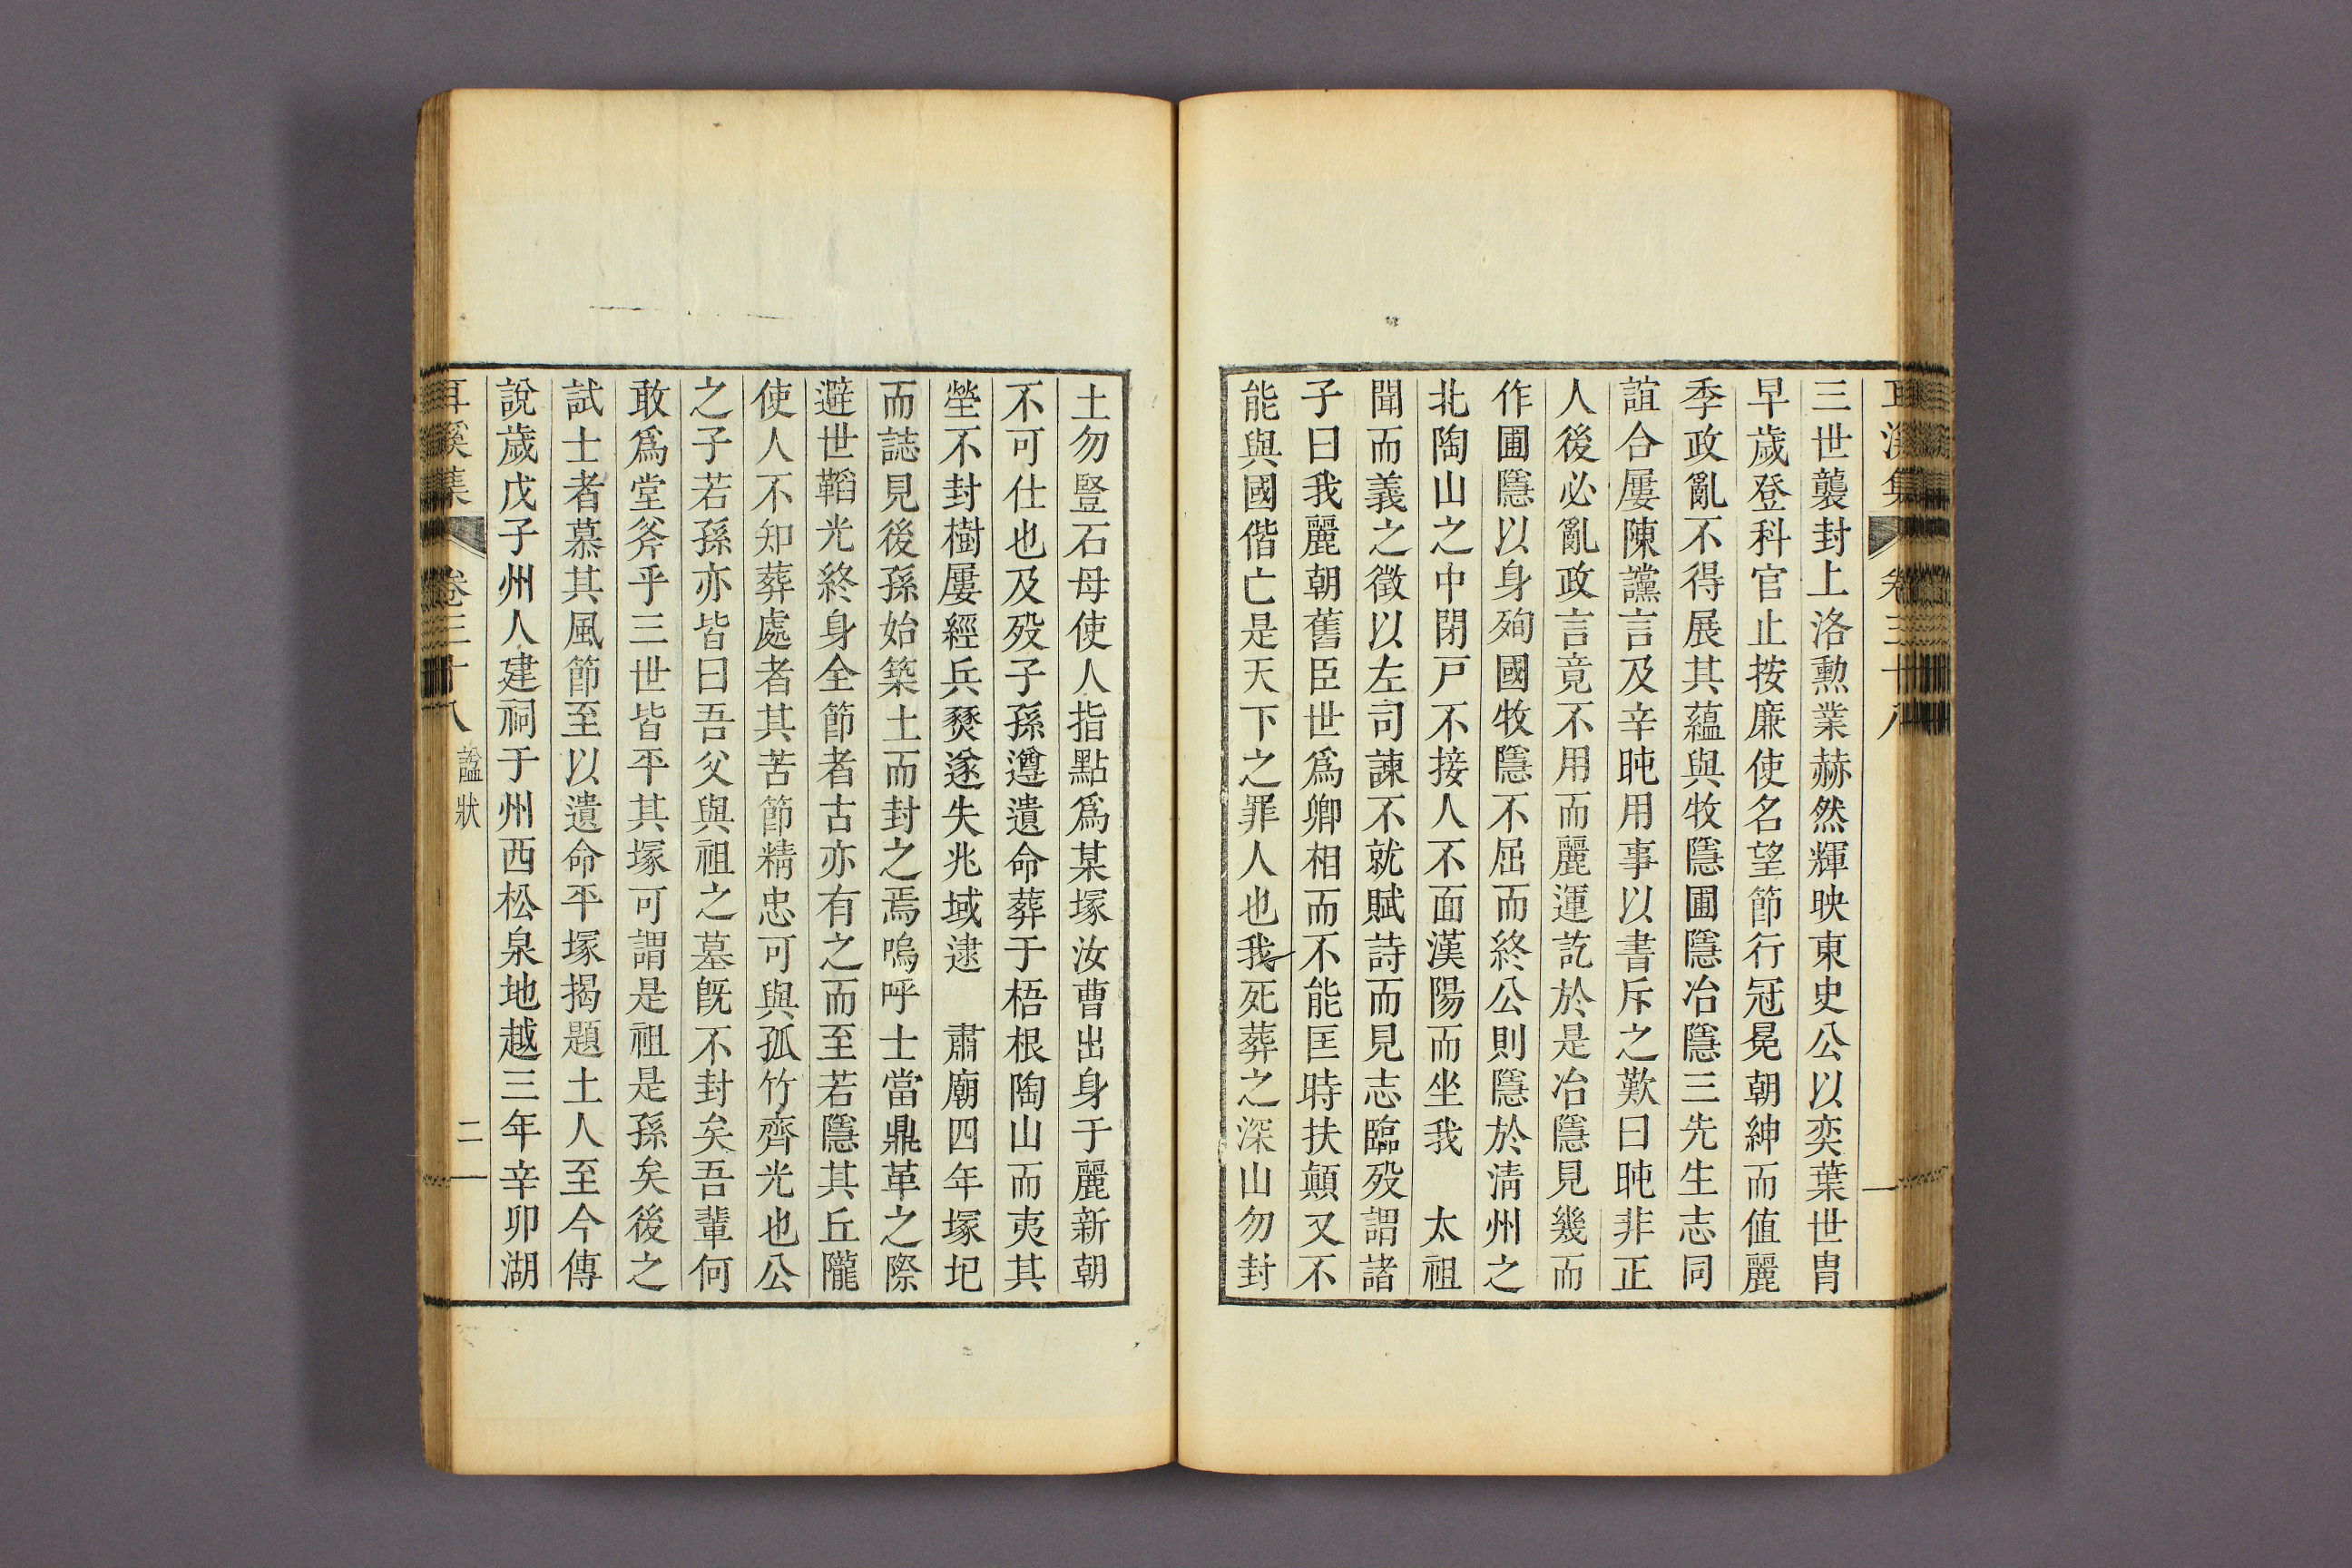 耳溪集 卷三十八 一
三世襲封上洛勲業赫然輝映東史公以奕葉世冑
早歲登科官止按廉使名望節行冠冕朝紳而值麗
季政亂不得展其蘊與牧隱圃隱冶隱三先生志同
誼合屢陳讜言及辛旽用事以書斥之歎曰旽非正
人後必亂政言竟不用而麗運訖於是冶隱見幾而
作圃隱以身殉國牧隱不屈而終公則隱於淸州之
北陶山之中閉戸不接人不面漢陽而坐我 太祖
聞而義之徵以左司諫不就賦詩而見志臨歿謂諸
子曰我麗朝舊臣世爲卿相而不能匡時扶顚又不
能與國偕亡是天下之罪人也我死葬之深山勿封
土勿豎石母使人指點爲某塚汝曹出身于麗新朝
不可仕也及歿子孫遵遺命葬于梧根陶山而夷其
塋不封樹屢經兵燹遂失兆域逮 肅廟四年塚圮
而誌見後孫始築土而封之焉嗚呼士當鼎革之際
避世韜光終身全節者古亦有之而至若隱其丘隴
使人不知葬處者其苦節精忠可與孤竹齊光也公
之子若孫亦皆曰吾父與祖之墓旣不封矣吾輩何
敢爲堂斧乎三世皆平其塚可謂是祖是孫矣後之
試士者慕其風節至以遺命平塚揭題土人至今傳
說歲戊子州人建祠于州西松泉地越三年辛卯湖
耳溪集 卷三十八 諡狀 二